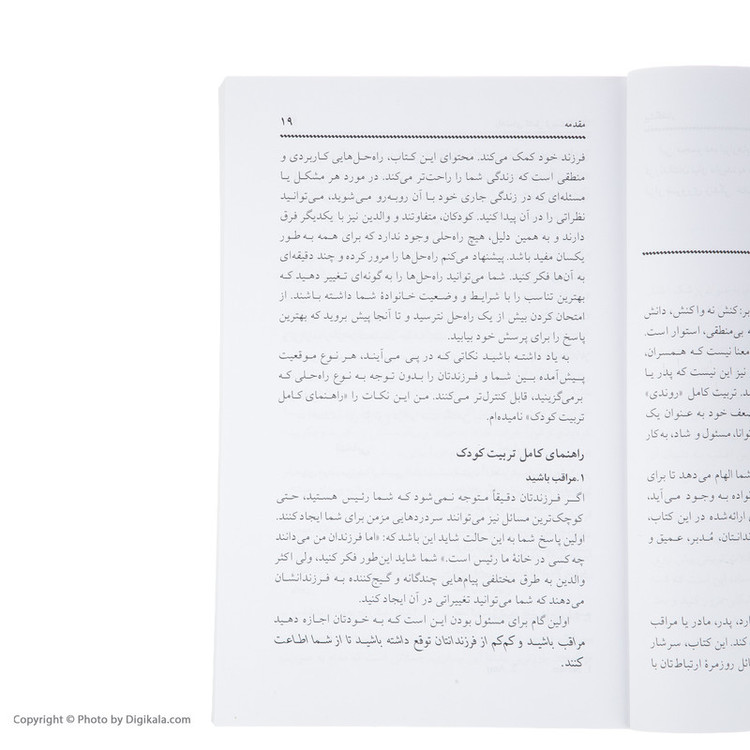 مقدمه ۱۹
فرزند خود کمک می‌کند. محتوای این کتاب، راه‌حل‌هایی کاربردی و
منطقی است که زندگی شما را راحت‌تر می‌کند. در مورد هر مشکل یا
مسئله‌ای که در زندگی جاری خود با آن روبه‌رو می‌شوید، می‌توانید
نظراتی را در آن پیدا کنید. کودکان، متفاوتند و والدین نیز با یکدیگر فرق
دارند و به همین دلیل، هیچ راه‌حلی وجود ندارد که برای همه به‌طور
یکسان مفید باشد. پیشنهاد می‌کنم راه‌حل‌ها را مرور کرده و چند دقیقه‌ای
به آن‌ها فکر کنید. شما می‌توانید راه‌حل‌ها را به گونه‌ای تغییر دهید که
بهترین تناسب را با شرایط و وضعیت خانوادهٔ شما داشته باشند. از
امتحان کردن بیش از یک راه‌حل نترسید و تا آنجا پیش بروید که بهترین
پاسخ را برای پرسش خود بیابید.
به یاد داشته باشید نکاتی که در پی می‌آیند، هر نوع موقعیت
پیش‌آمده بین شما و فرزندتان را بدون توجه به نوع راه‌حلی که
برمی‌گزینید، قابل کنترل‌تر می‌کنند. من این نکات را «راهنمای کامل
تربیت کودک» نامیده‌ام.
راهنمای کامل تربیت کودک
۱.مراقب باشید
اگر فرزندتان دقیقاً متوجه نمی‌شود که شما رئیس هستید، حتی
کوچک‌ترین مسائل نیز می‌توانند سردردهایی مزمن برای شما ایجاد کنند.
اولین پاسخ شما به این حالت شاید این باشد که: «اما فرزندان من می‌دانند
چه کسی در خانهٔ ما رئیس است.» شما شاید این‌طور فکر کنید، ولی اکثر
والدین به طرق مختلفی پیام‌هایی چندگانه و گیج‌کننده به فرزندانشان
می‌دهند که شما می‌توانید تغییراتی در آن ایجاد کنید.
اولین گام برای مسئول بودن این است که به خودتان اجازه دهید
مراقب باشید و کم‌کم از فرزندانتان توقع داشته باشید تا از شما اطاعت
کنند.
بر: کنش نه واکنش، دانش
بی‌منطقی، استوار است.
معنا نیست که همسران،
نیز این نیست که پدر یا
تربیت کامل «روندی»
ضعف خود به عنوان یک
توانا، مسئول و شاد، به‌کار
شما الهام می‌دهد تا برای
به وجود می‌آید،
ارائه‌شده در این کتاب،
مُدبر، عمیق و
پدر، مادر یا مراقب
کند. این کتاب، سرشار
روزمرهٔ ارتباط‌تان با
Copyright © Photo by Digikala.com